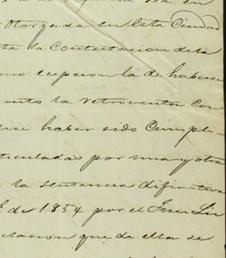 otorgada en esta Ciudad
ta la Contestacion dela
omo ecepcion la de haberse
ento la retroventa con
dice haber sido Cumpli-
ticuladas por una y otra
la sentencia difinitiva
de 1854 por el Juez
elacion que de ella se